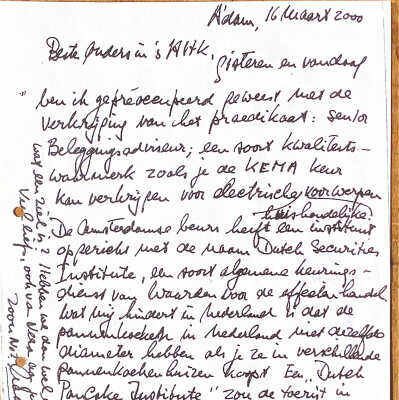 A'dam, 16 maart 2000
Beste ouders in 's
gisteren en vandaag
ben ik gepréoccupeerd geweest met de
verkrijging van het praedikaat: senior
Beleggingsadviseur; een soort kwaliteits-
waarmerk zoals je de KEMA keur
kan verkrijgen voor electrische voorwerpen
huishoudelijke
De Amsterdamse beurs heeft een instituut
opgericht met de naam Dutch Securities
Institute, een soort algemene keurings-
dienst van waarden voor de effectenhandel
Wat mij hindert in nederland is dat de
pannenkoeken in nederland niet dezelfde
diameter hebben als je ze in verschillende
Pannenkoekenhuizen koopt Een "Dutch
PanCake Institute" zou de toerist in
wat een ziel is? Hebben we dan wel
Veel liefs, ook va Vera
zoon Nr: